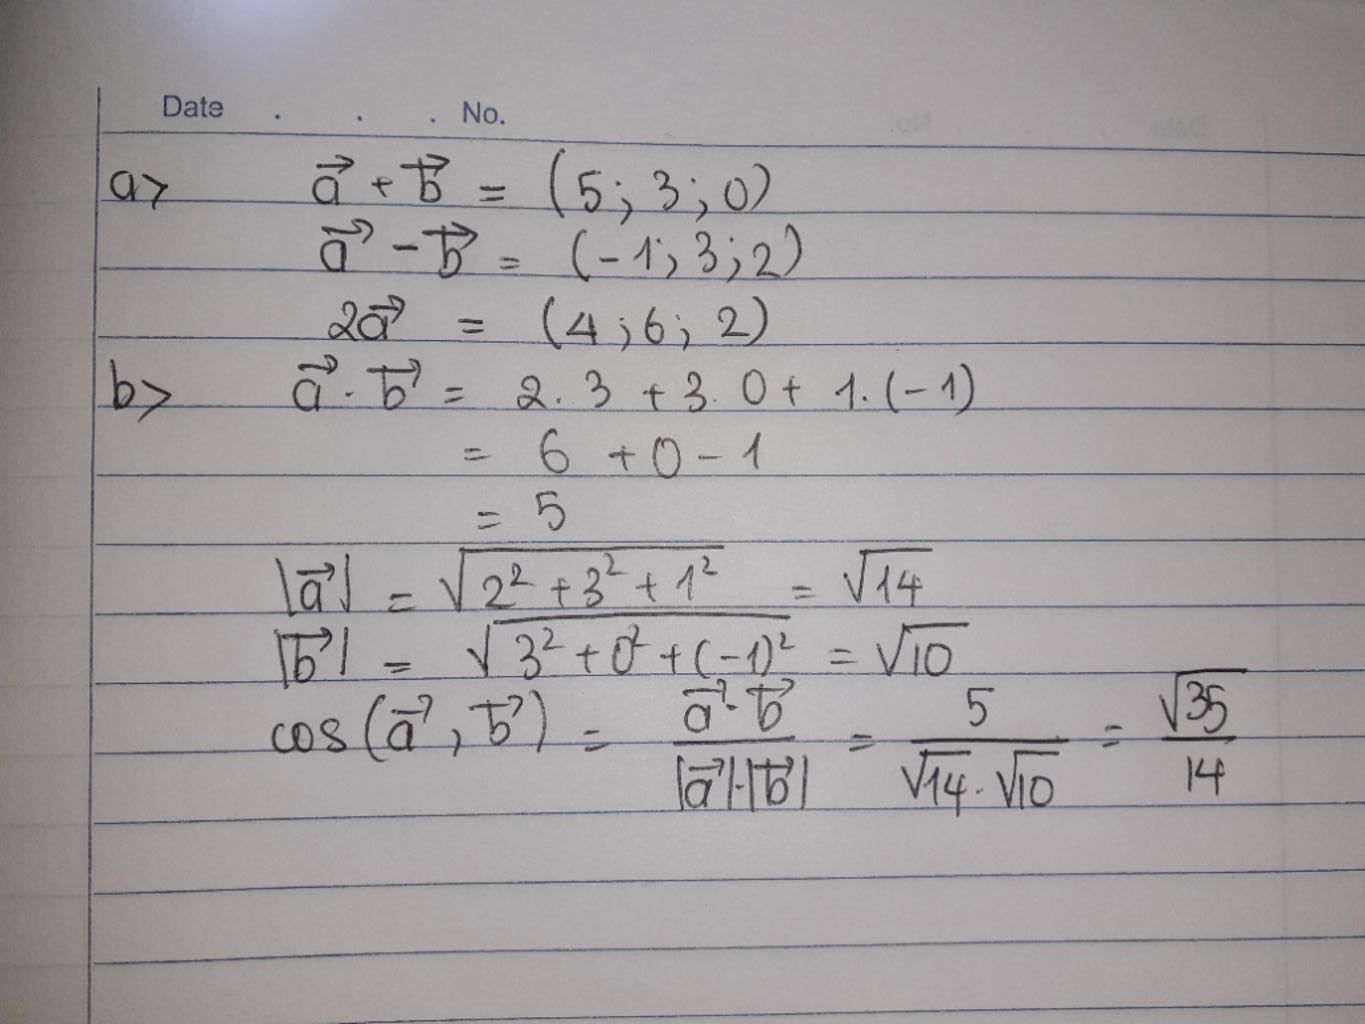 Date . . . No.
a> a⃗ + b⃗ = (5; 3; 0)
a⃗ - b⃗ = (-1; 3; 2)
2a⃗ = (4; 6; 2)
b> a⃗ . b⃗ = 2. 3 + 3. 0 + 1. (-1)
= 6 + 0 - 1
= 5
|a⃗| = √(2² + 3² + 1²) = √14
|b⃗| = √(3² + 0² + (-1)²) = √10
cos(a⃗, b⃗) = (a⃗ . b⃗)/(|a⃗|.|b⃗|) = 5/(√14 . √10) = √35/14